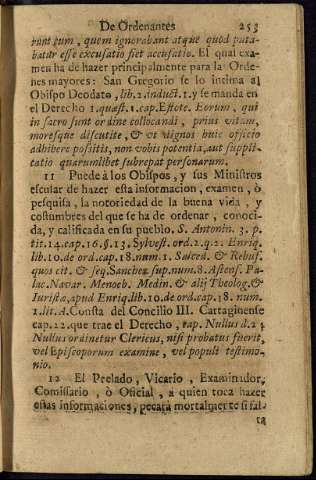 De Ordenantes 253
runt eum, quem ignorabant atque quod puta-
batur esse excusatio fiet accusatio. El qual exa-
men ha de hazer principalmente para la Orde-
nes mayores: San Gregorio se lo inčima al
Obispo Deodato, lib. 2. indict. 1. y se manda en
el Derecho 1. quæst. 1. cap. Estote. Eorum, qui
in sacro sunt ordine collocandi, prius vitam,
moresque discutite, & ut dignos huic officio
adhibere possitis, non vobis potentia, aut suppli-
catio quarumlibet subrepat personarum.
11 Puede à los Obispos, y sus Ministros
escular de hazer esta informacion, examen, ò
pesquisa, la notoriedad de la buena vida, y
costumbres del que se ha de ordenar, conoci-
da, y calificada en su pueblo. S. Antonin. 3. p.
tit. 14. cap. 16. §. 13. Sylvest. ord. 2. q. 2. Enriq.
lib. 10. de ord. cap. 18. num. 1. Saced. & Rebuf.
quos cit. & seq. Sanchez sup. num. 8. Astens. Pa-
lac. Navar. Menoch. Medin. & alij Theolog. &
Juristæ, apud Enriq. lib. 10. de ord. cap. 18. num.
1. lit. A. Consta del Concilio III. Cartaginense
cap. 22. que trae el Derecho, cap. Nullus d. 24.
Nullus ordinetur Clericus, nisi probatus fuerit,
vel Episcoporum examine, vel populi testimo-
nio.
12 El Prelado, Vicario, Examinador,
Comissario, ò Oficial, a quien toca hazer
estas informaciones, pecará mortalmente si fal-
ta